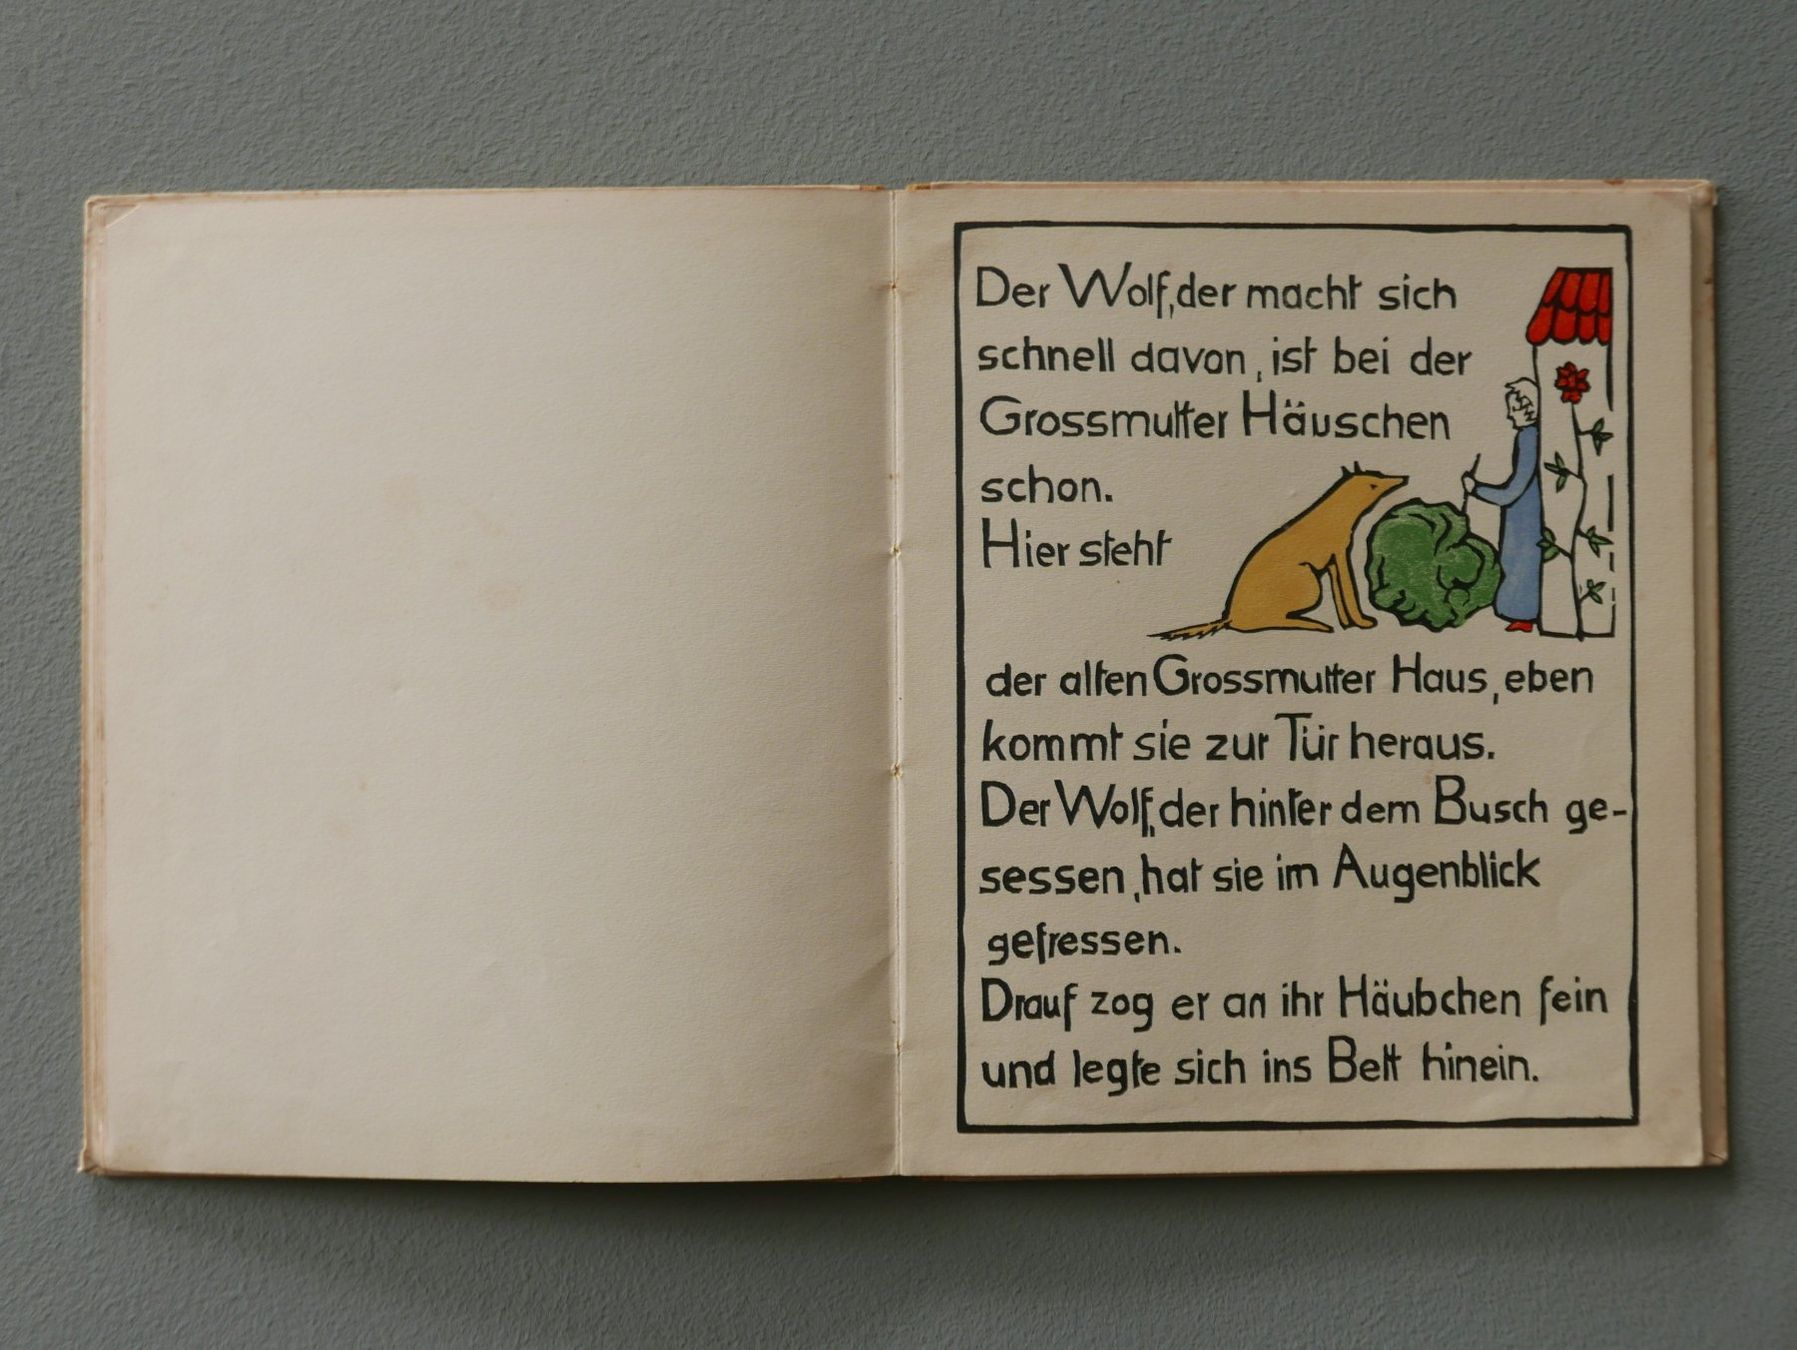 Der Wolf, der macht sich
schnell davon, ist bei der
Grossmutter Häuschen
schon.
Hier steht
der alten Grossmutter Haus, eben
kommt sie zur Tür heraus.
Der Wolf, der hinter dem Busch ge-
sessen, hat sie im Augenblick
gefressen.
Drauf zog er an ihr Häubchen fein
und legte sich ins Bett hinein.